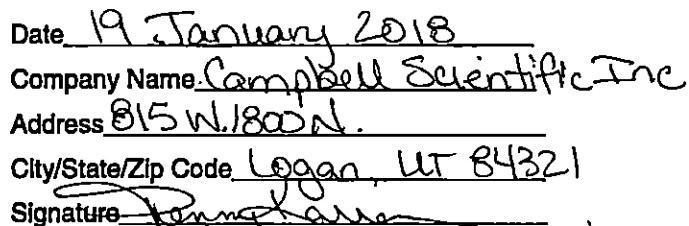 Date 19 January 2018
Company Name Campbell Scientific Inc
Address 815 W. 1800 N.
City/State/Zip Code Logan, UT 84321
Signature